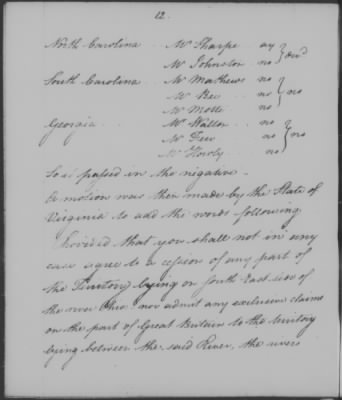 12.
North Carolina . . Mr Sharpe ay } divd
Mr Johnston no
South Carolina . . Mr Mathews no } no
Mr Bee no
Mr Motte no
Georgia . . Mr Walton . . no } no
Mr Few no
Mr Howly . . no
So it passed in the negative.
A motion was then made by the State of
Virginia to add the words following
Provided that you shall not in any
case agree to a cession of any part of
the Territory lying on South East side of
the river Ohio nor admit any exclusive claims
on the part of Great Britain to the territory
lying between the said River, the rivers